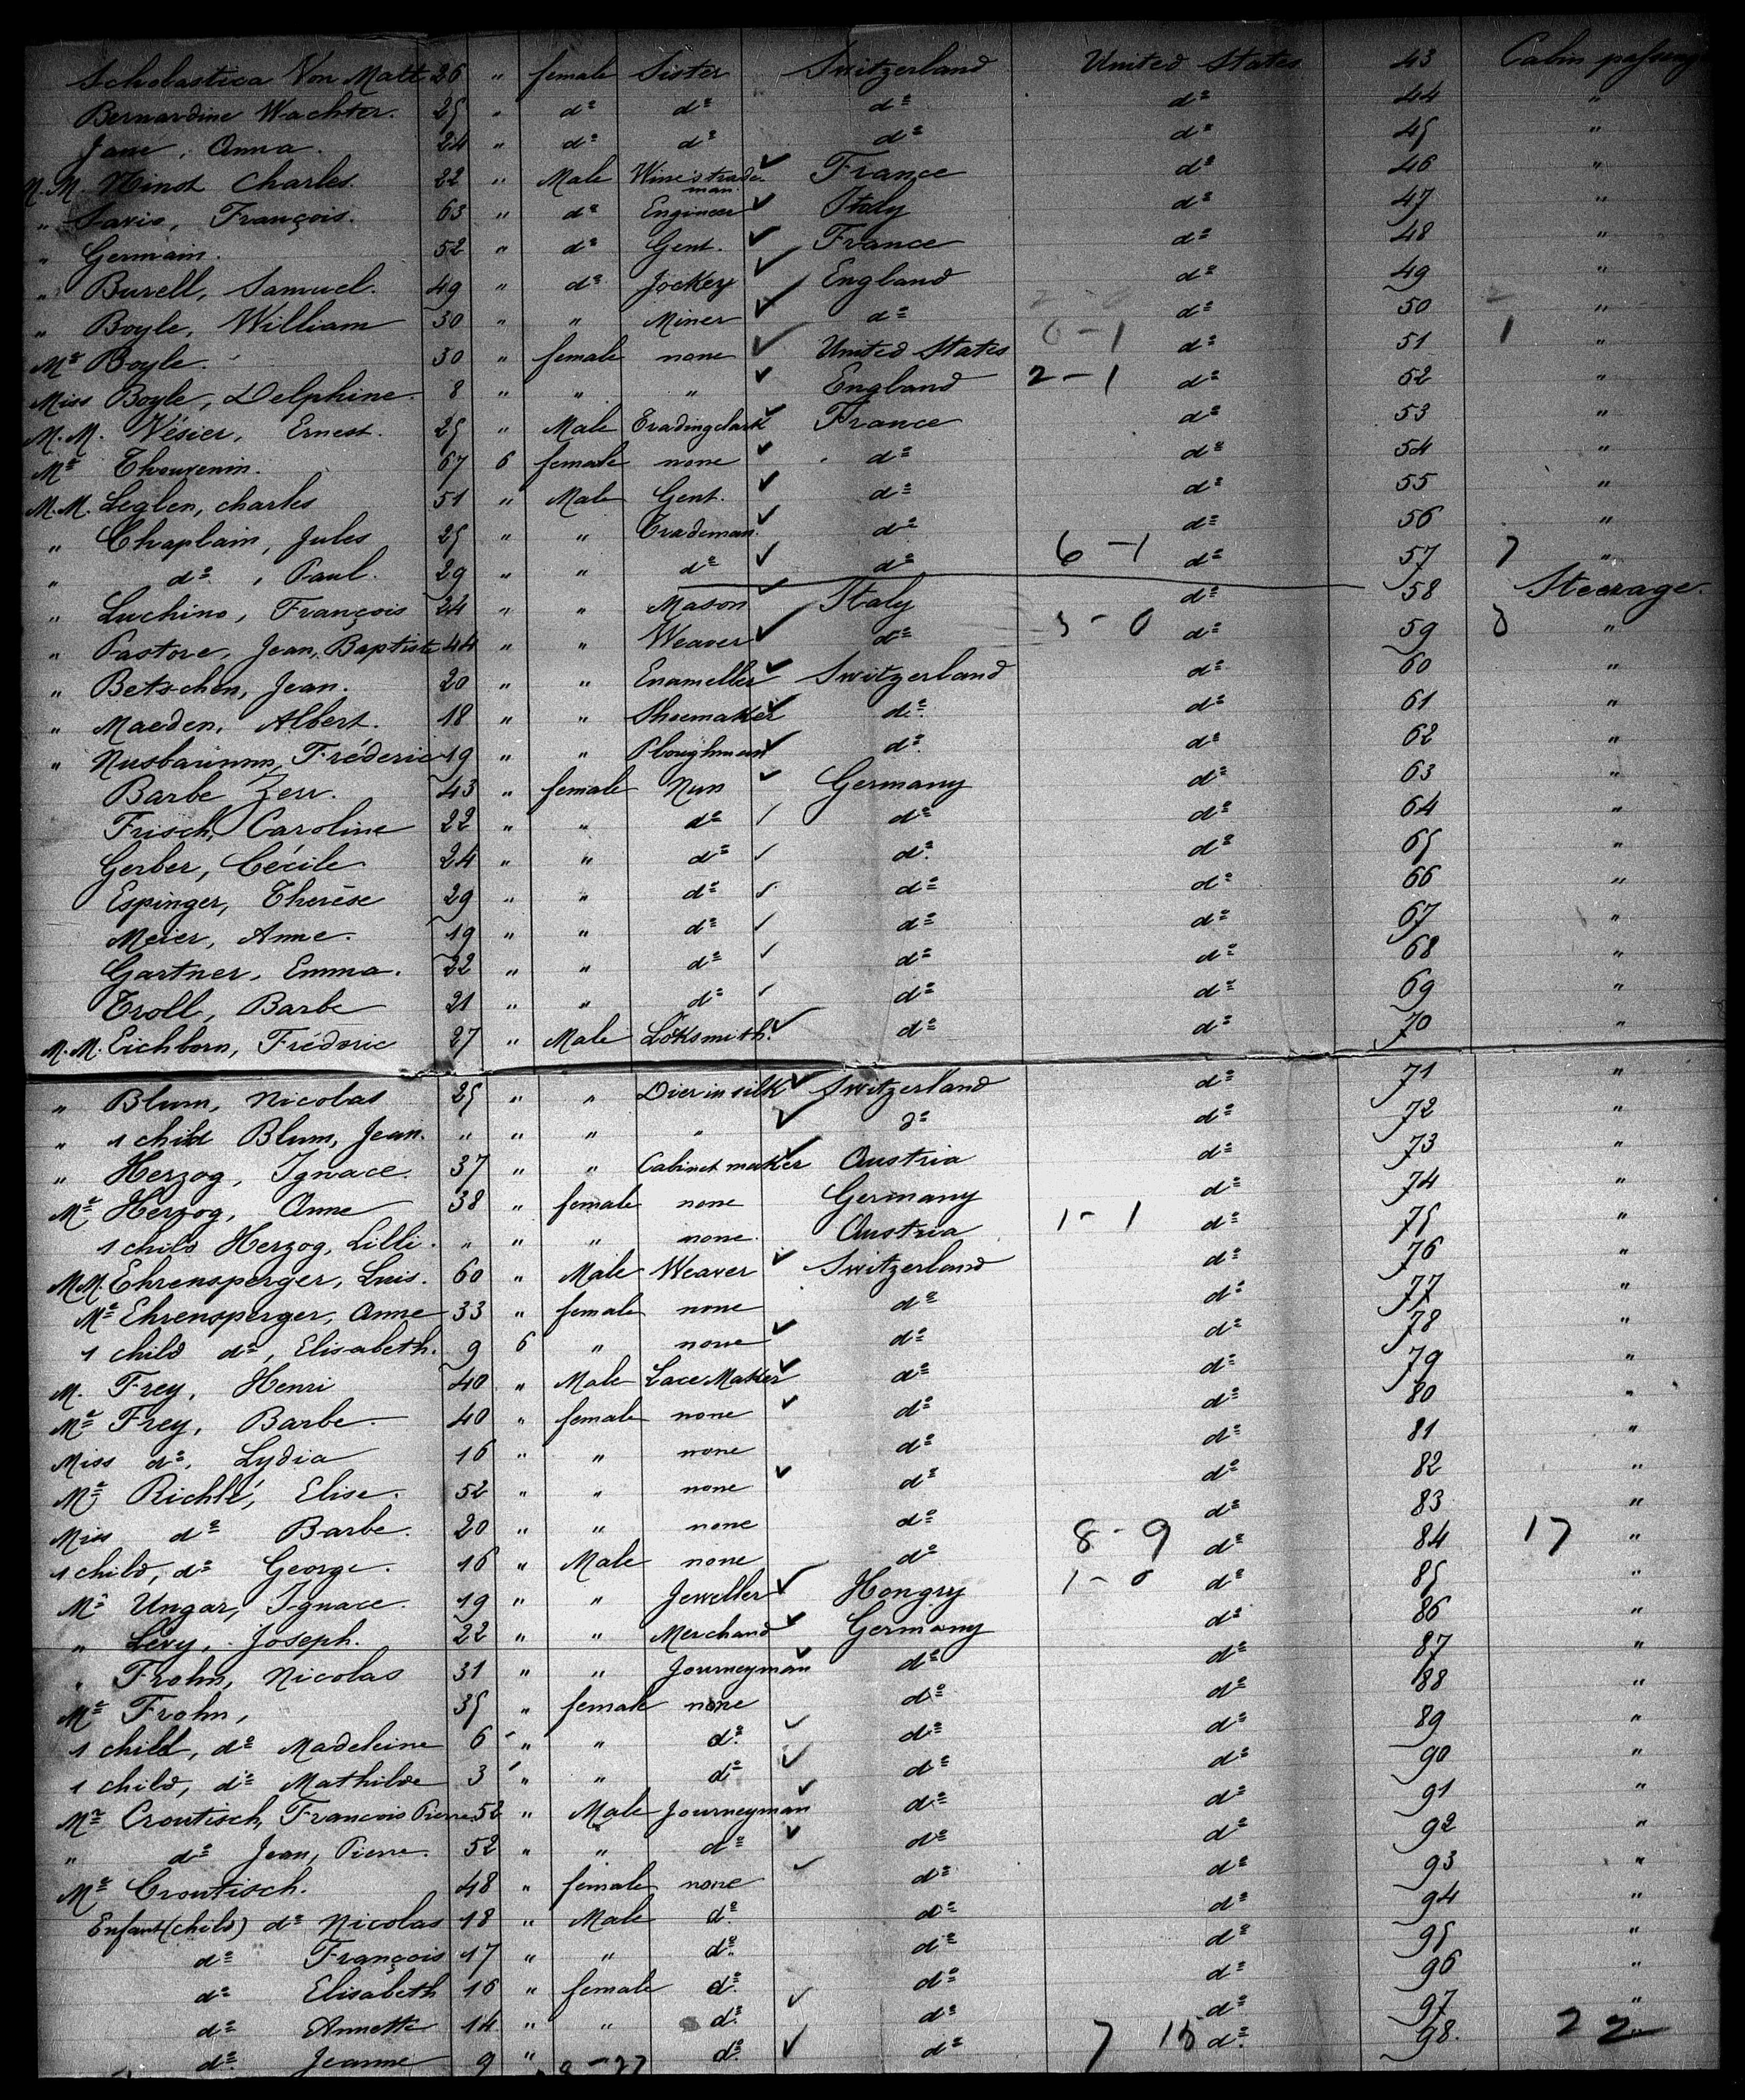 Scholastica Von Matt 26 " female Sister Switzerland United States 43 Cabin
Bernardine Wachter. 25 " dº dº dº dº 44 "
Jann, Anna. 24 " dº dº dº dº 45 "
M.M. Charles. 22 " Male Wine's trade man. France dº 46 "
" François. 63 " dº Engineer Italy dº 47 "
" Germain. 52 " dº Gent. France dº 48 "
" Burell, Samuel. 49 " dº Jockey England dº 49 "
" Boyle, William 30 " " Miner dº dº 50 "
Mº Boyle. 30 " female none United States 0-1 dº 51 1 "
Miss Boyle, Delphine. 8 " " " England 2-1 dº 52 "
M.M. Vésier, Ernest. 25 " Male Trading clark France dº 53 "
Mº Thouvenin. 67 6 female none dº dº 54 "
M.M. Leglen, charles 51 " Male Gent. dº dº 55 "
" Chaplain, Jules 25 " " Trademan. dº dº 56 "
" dº, Paul. 29 " " dº dº 6-1 dº 57 7 "
" Luchino, François 24 " " Mason Italy dº 58 Steerage.
" Pastore, Jean, Baptiste 44 " " Weaver dº 3-0 dº 59 "
" Betschen, Jean. 20 " " Enameller Switzerland dº 60 "
" Maeden, Albert. 18 " " Shoemaker dº dº 61 "
" Nusbaumm, Fréderic 19 " " Ploughman dº dº 62 "
Barbe Zerr. 43 " female Nun Germany dº 63 "
Frisch, Caroline 22 " " dº dº dº 64 "
Gerber, Cécile 24 " " dº dº dº 65 "
Espinger, Therése 29 " " dº dº dº 66 "
Meier, Anne. 19 " " dº dº dº 67 "
Gartner, Emma. 22 " " dº dº dº 68 "
Troll, Barbe 21 " " dº dº dº 69 "
M.M. Eichborn, Fréderic 27 " Male Loksmith. dº dº 70 "
" Blum, Nicolas 25 " " Dier in silk Switzerland dº 71 "
" 1 child Blum, Jean. " " " " dº dº 72 "
" Herzog, Ignace. 37 " " Cabinet maker Austria dº 73 "
Mº Herzog, Anne 38 " female none Germany dº 74 "
1 child Herzog, Lilli. " " " none. Austria 1-1 dº 75 "
M.M. Ehrensperger, Luis. 60 " Male Weaver Switzerland dº 76 "
Mº Ehrensperger, Anne 33 " female none dº dº 77 "
1 child dº, Elisabeth. 9 6 " none dº dº 78 "
M. Frey, Henri 40 " Male Lace Maker dº dº 79 "
Mº Frey, Barbe. 40 " female none dº dº 80 "
Miss dº, Lydia 16 " " none dº dº 81 "
Mº Richlé, Elise. 52 " " none dº dº 82 "
Miss dº Barbe. 20 " " none dº dº 83 "
1 child, dº George. 16 " Male none dº 8-9 dº 84 17 "
Mº Ungar, Ignace. 19 " " Jeweller Hongry 1-0 dº 85 "
" Lévy, Joseph. 22 " " Merchand Germany dº 86 "
" Frohn, Nicolas 31 " " Journeyman dº dº 87 "
Mº Frohn, 35 " female none dº dº 88 "
1 child, dº Madeleine 6 " " dº dº dº 89 "
1 child, dº Mathilde 3 " " dº dº dº 90 "
Mº Croutisch, François Pierre. 52 " Male Journeyman dº dº 91 "
" dº Jean, Pierre. 52 " " dº dº dº 92 "
Mº Croutisch. 48 " female none dº dº 93 "
Enfant (child) dº Nicolas 18 " Male dº dº dº 94 "
dº François 17 " " dº dº dº 95 "
dº Elisabeth 16 " female dº dº dº 96 "
dº Annette 14 " " dº dº dº 97 "
dº Jeanne 9 " dº dº 7 15 dº 98. 22